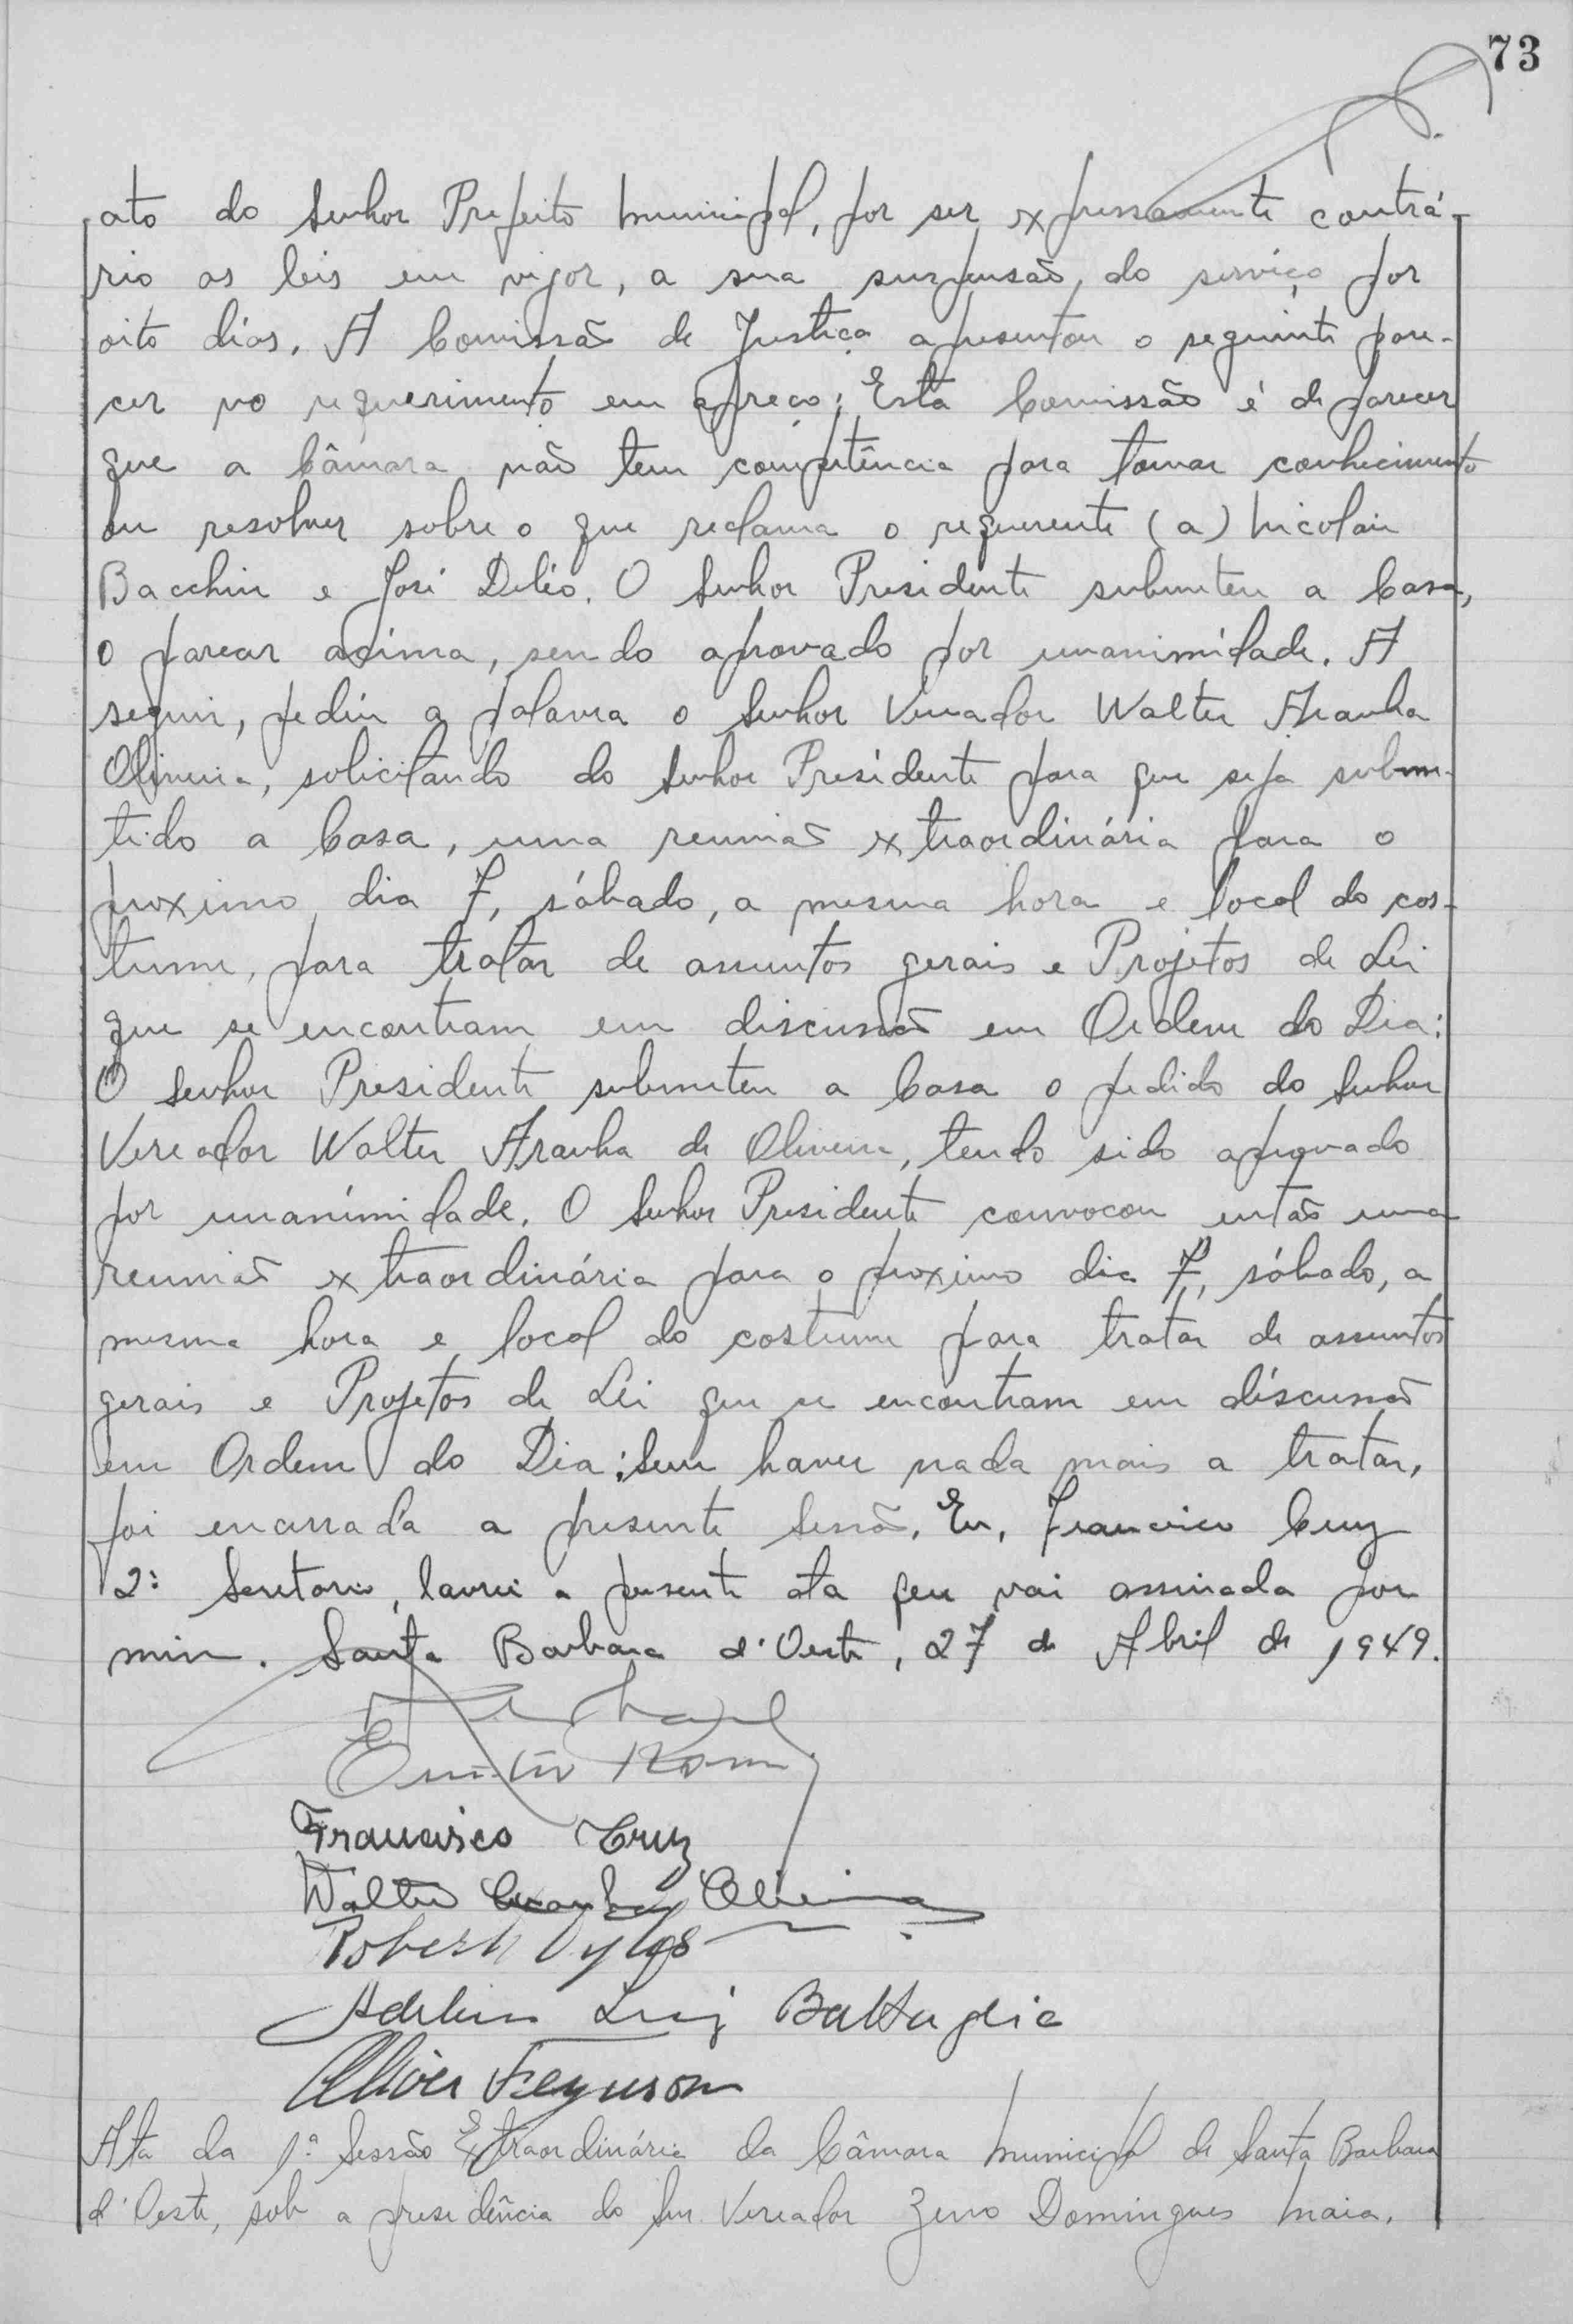 73
ato do Senhor Prefeito Municipal, por ser expressamente contrá-
rio as leis em vigor, a sua suspensão, do serviço por
oito dias. A Comissão de Justiça apresentou o seguinte pare-
cer no requerimento em apreço: Esta Comissão é de parecer
que a Câmara não tem competência para tomar conhecimento
ou resolver sobre o que reclama o requerente (a) Nicolau
Bacchin e José Deléo. O Senhor Presidente submeteu a Casa,
o parecer acima, sendo aprovado por unanimidade. A
seguir, pediu a palavra o Senhor Vereador Walter Aranha
Oliveira, solicitando do Senhor Presidente para que seja subme-
tido a Casa, uma reunião extraordinária para o
proximo dia 7, sábado, a mesma hora e local do cos-
tume, para tratar de assuntos gerais e Projetos de Lei
que se encontram em discussão em Ordem do Dia:
O Senhor Presidente submeteu a Casa o pedido do Senhor
Vereador Walter Aranha de Oliveira, tendo sido aprovado
por unanimidade. O Senhor Presidente convocou então uma
reunião extraordinária para o proximo dia 7, sábado, a
mesma hora e local do costume para tratar de assuntos
gerais e Projetos de Lei que se encontram em discussão
em Ordem do Dia: Sem haver nada mais a tratar,
foi encerrada a presente Sessão. Eu, Francisco Cruz
2º Secretario, lavrei a presente ata que vai assinada por
mim. Santa Barbara d'Oeste, 27 de Abril de 1949.
Emilio Romi
Francisco Cruz
Walter Aranha Oliveira
Robert Pyles
Luiz Battaglia
Oliver Ferguson
Ata da 1ª Sessão Extraordinária da Câmara Municipal de Santa Barbara
d'Oeste, sob a presidência do Snr. Vereador Zeno Domingues Maia.